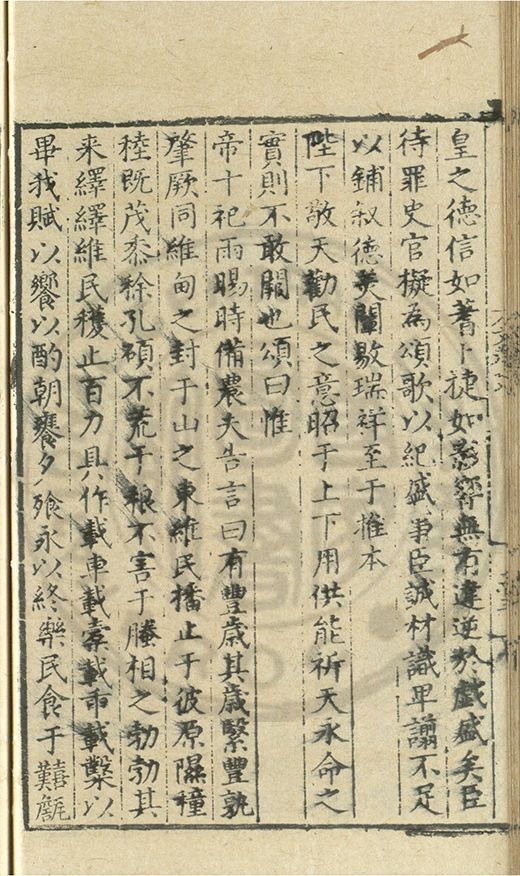 皇之德信如蓍卜捷如影響無有違逆於戲盛矣臣
待罪史官擬為頌歌以紀盛事臣誠材識卑謭不足
以鋪叙德美闡敭瑞祥至于推本
陛下敬天勸民之意昭于上下用供能祈天永命之
實則不敢闕也頌曰惟
帝十祀雨暘時備農夫告言曰有豐歳其歳繄豐孰
肇厥同維甸之封于山之東維民播止于彼原隰穜
稑既茂黍稌孔碩不荒于稂不害于螣相之勃勃其
来繹繹維民穫止百力具作載車載橐載市載鑿以
畢我賦以饗以酌朝饔夕飱永以終樂民食于囏